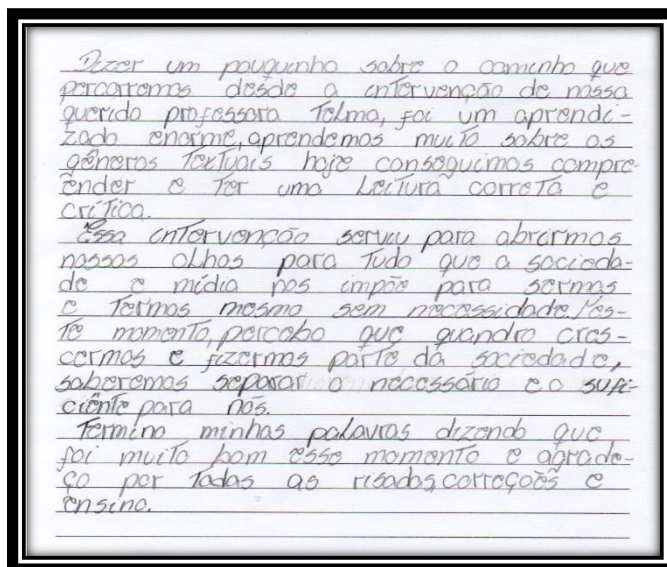 Dizer um pouquinho sobre o caminho que
percorremos desde a intervenção de nossa
querida professora Telma, foi um aprendi-
zado enorme, aprendemos muito sobre os
gêneros textuais hoje conseguimos compre-
ender e ter uma leitura correta e
crítica.
Essa intervenção serviu para abrirmos
nossos olhos para tudo que a socieda-
de e mídia nos impõe para sermos
e termos mesmo sem necessidade. Nes-
te momento, percebo que quandro cres-
cermos e fizermos parte da sociedade,
saberemos separar o necessário e o sufi-
ciênte para nós.
Termino minhas palavras dizendo que
foi muito bom esse momento e agrade-
ço por todas as risadas, correções e
ensino.